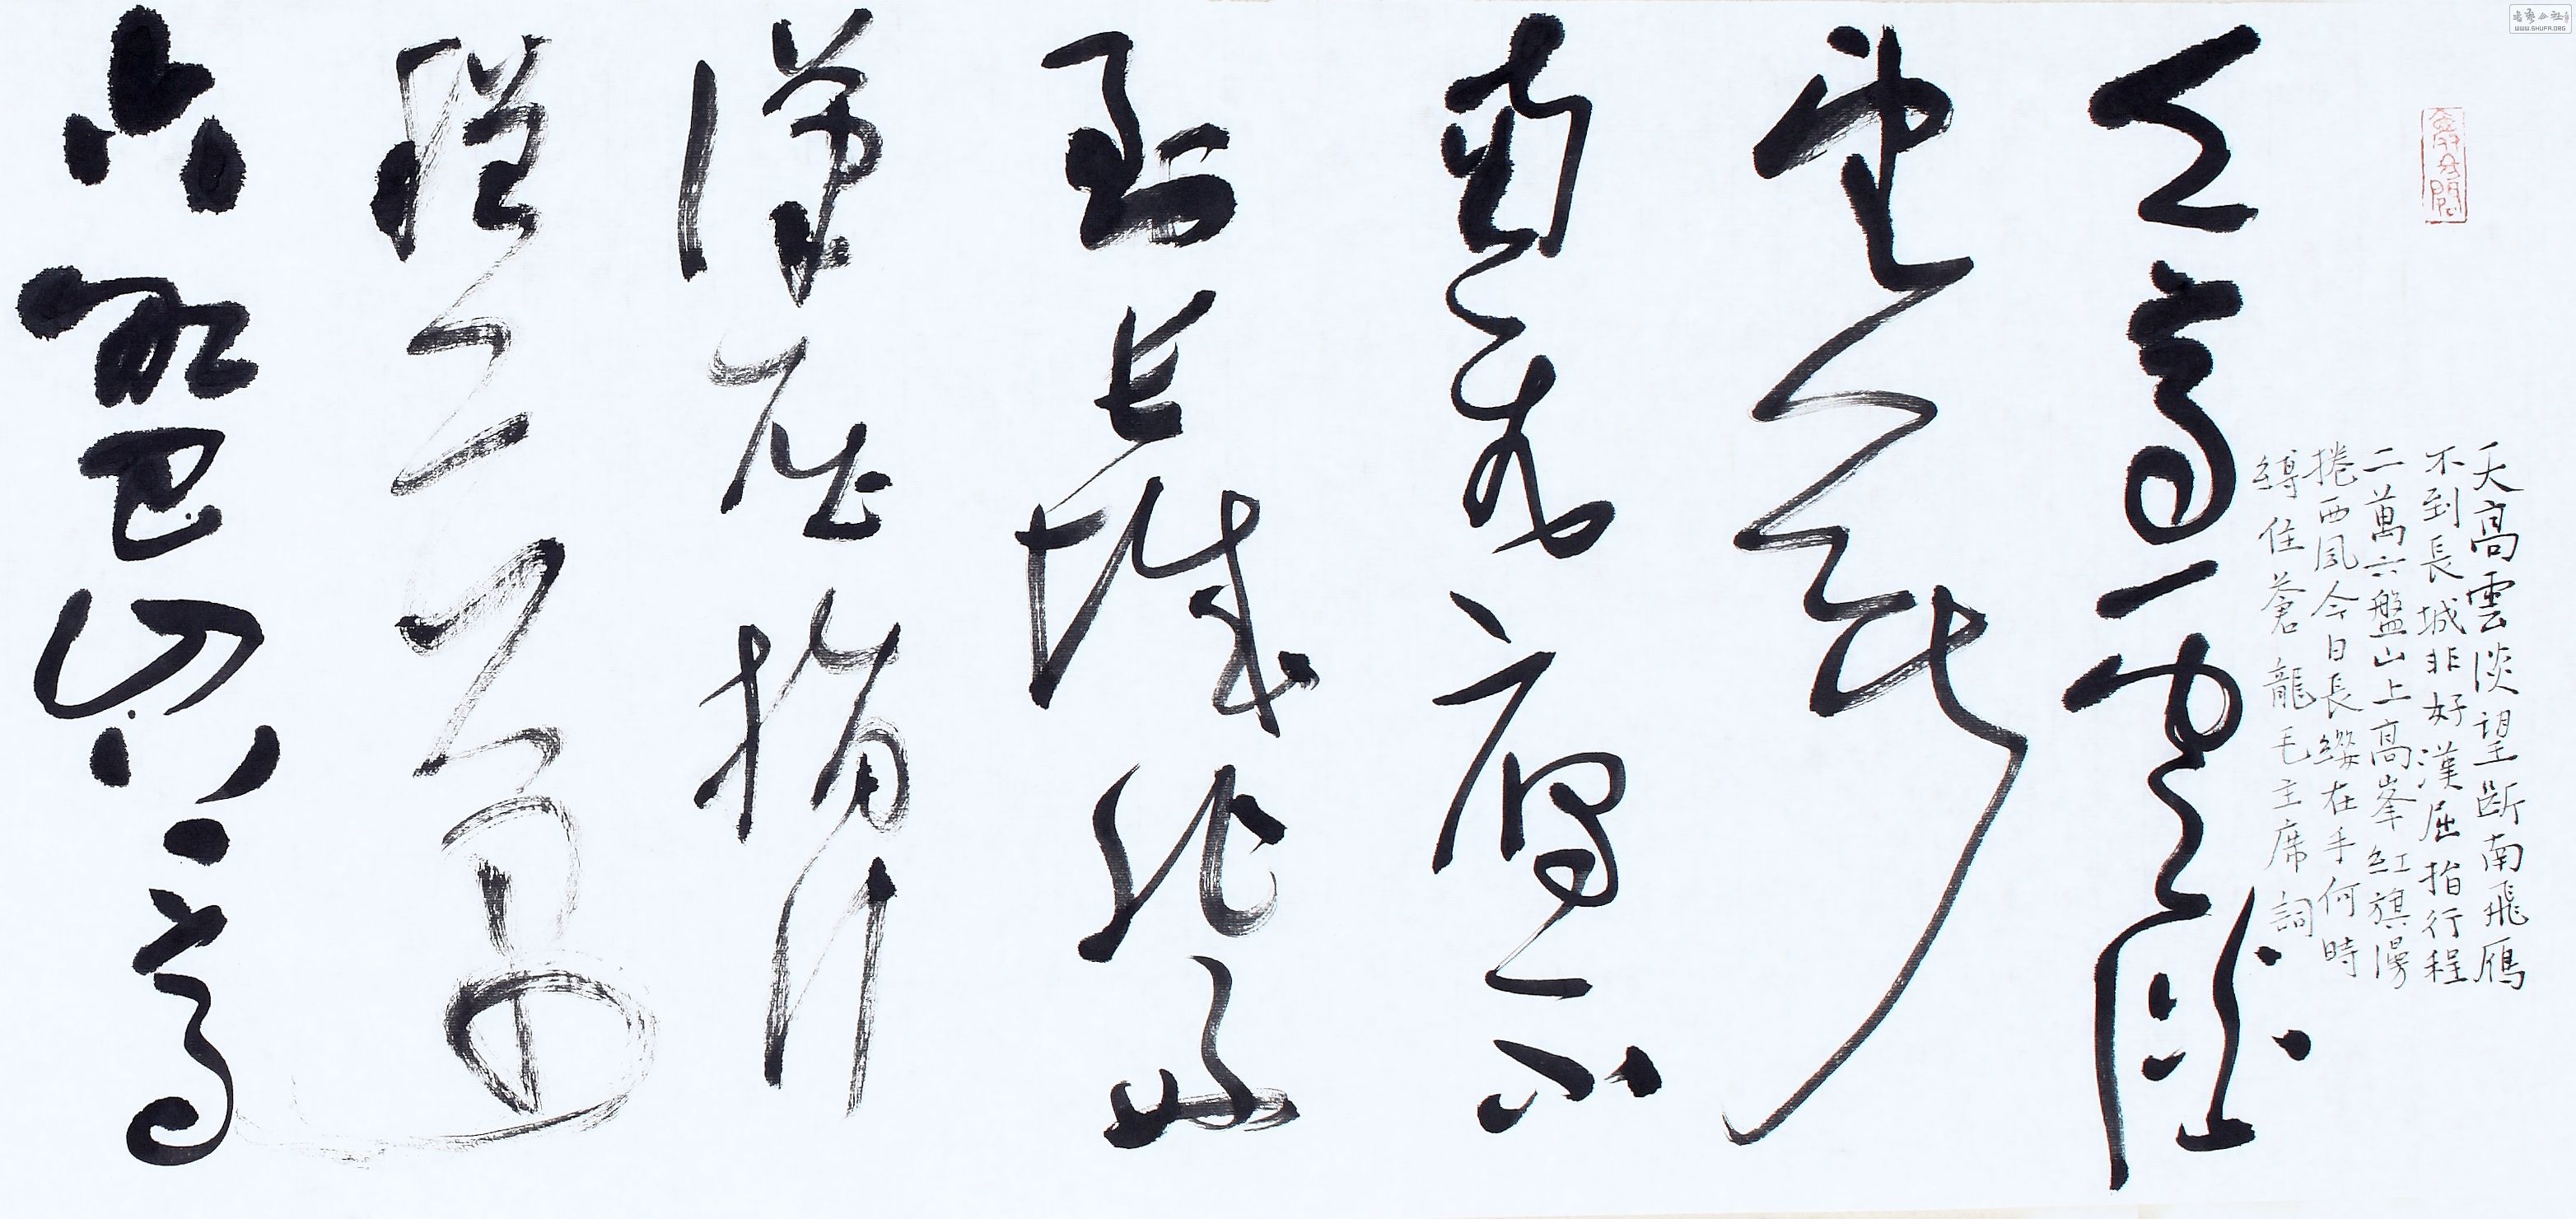 天高雲淡望斷南飛雁
不到長城非好漢屈指行程
二萬六盤山上高峯紅旗漫
捲西風今日長纓在手何時
縛住蒼龍毛主席詞
天高雲淡
望斷
南飛雁不
到長城非好
漢屈指行
程二萬
六盤山上高
WWW.SHUFA.ORG